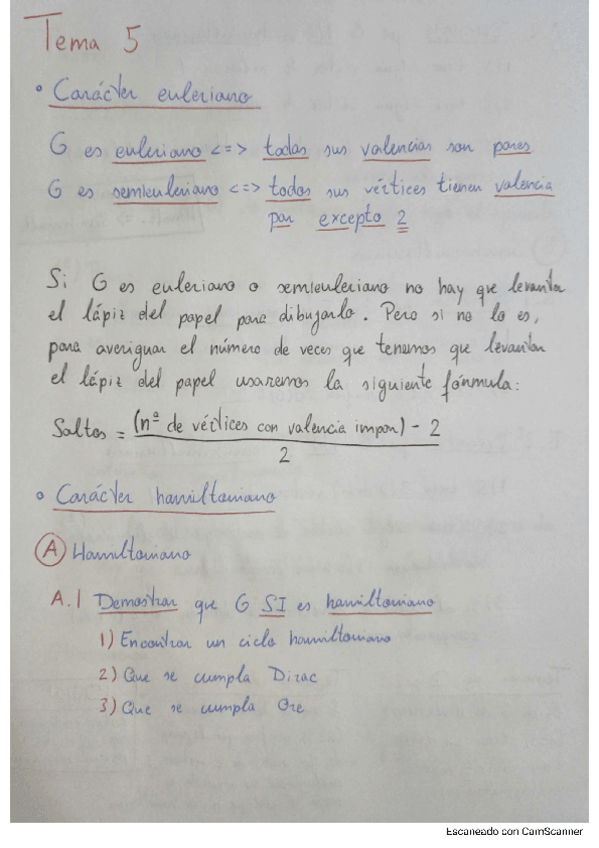 Tema 5
• Carácter euleriano
G es euleriano <=> todas sus valencias son pares
G es semieuleriano <=> todos sus vértices tienen valencia
par excepto 2
Si G es euleriano o semieuleriano no hay que levantar
el lápiz del papel para dibujarlo. Pero si no lo es,
para averiguar el número de veces que tenemos que levantar
el lápiz del papel usaremos la siguiente fórmula:
Saltos = (nº de vértices con valencia impar) - 2
2
• Carácter hamiltoniano
A Hamiltoniano
A.1 Demostrar que G SI es hamiltoniano
1) Encontrar un ciclo hamiltoniano
2) Que se cumpla Dirac
3) Que se cumpla Ore
Escaneado con CamScanner